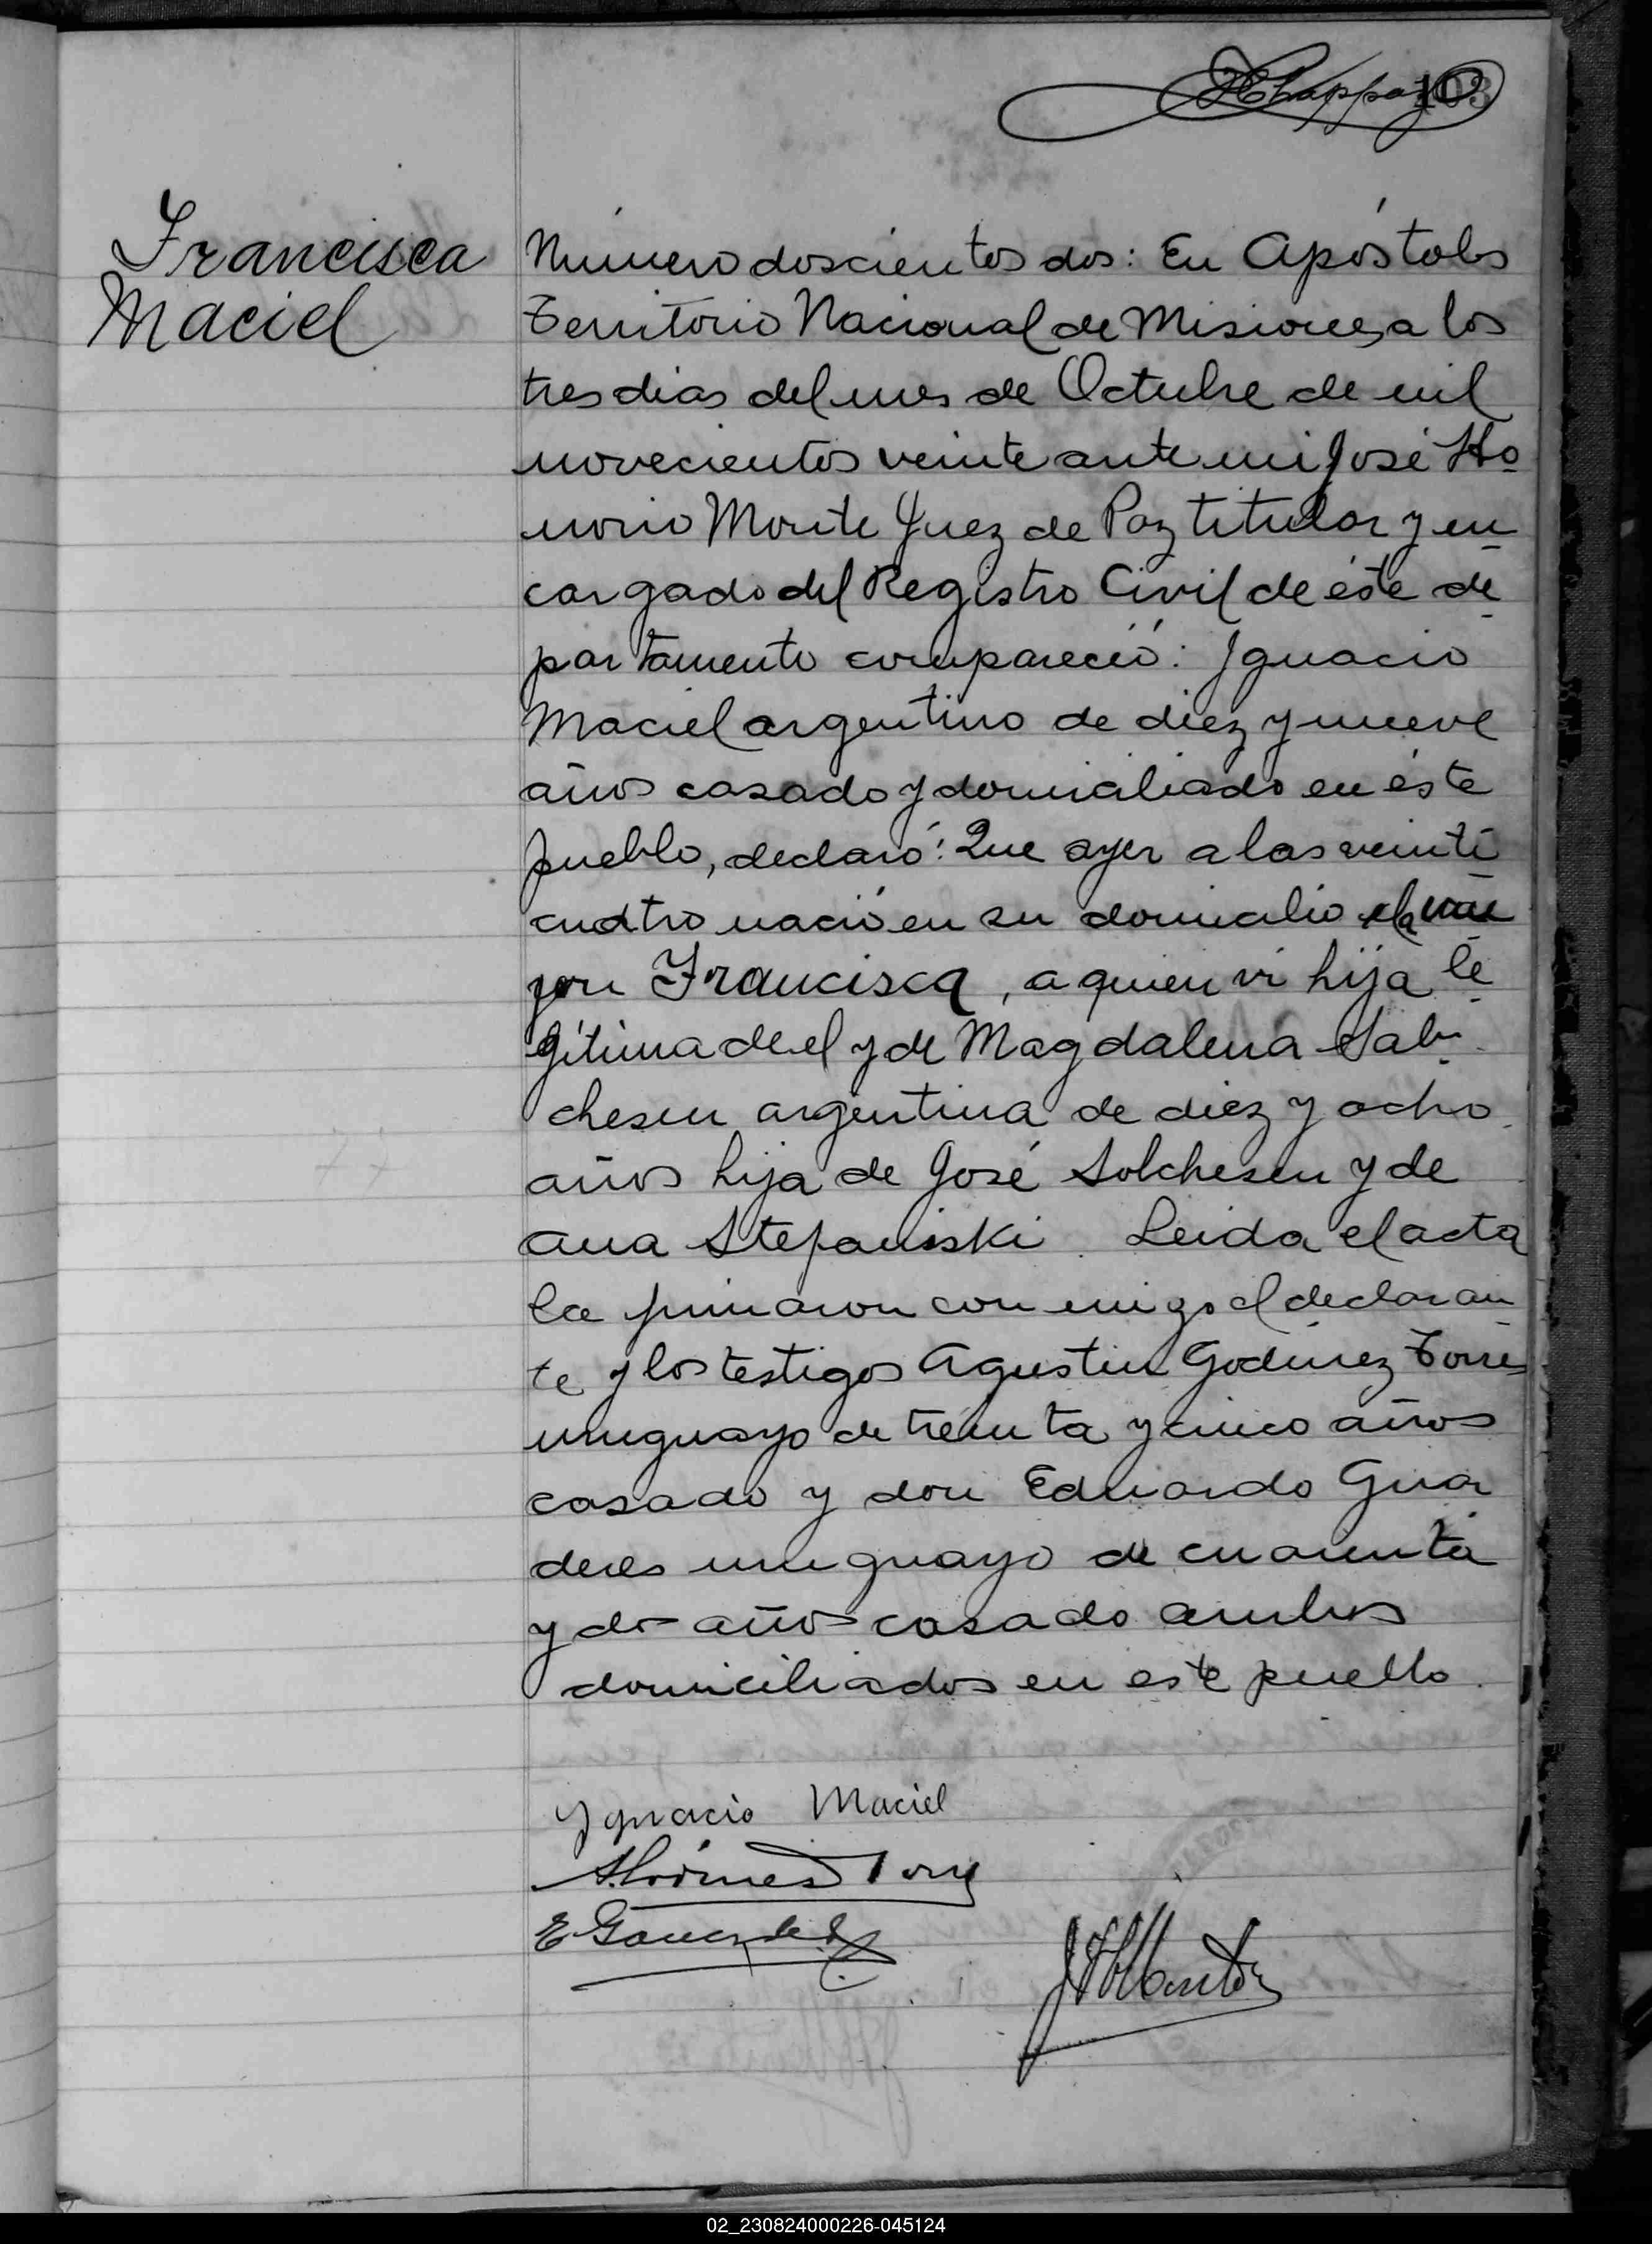 103
Francisca
Maciel
Número doscientos dos: En Apóstoles
Territorio Nacional de Misiones, a los
tres dias del mes de Octubre de mil
novecientos veinte ante mi José Ho
norio Monte Juez de Paz titular y en
cargado del Registro Civil de éste de
partamento compareció: Ignacio
Maciel argentino de diez y nueve
años casado y domiciliado en éste
pueblo, declaró: Que ayer a las veinti
cuatro nació en su domicilio la mu
jer Francisca, a quien vi hija le
gítima de el y de Magdalena Sal
chesen argentina de diez y ocho
años hija de José Solchesen y de
Ana Stefaniski. Leida el acta
la firmaron con migo el declaran
te y los testigos Agustin Godinez Torres
uruguayo de treinta y cinco años
casado y don Eduardo
uruguayo de cuarenta
y dos años casado ambos
domiciliados en este pueblo.
Ygnacio Maciel
02_230824000226-045124